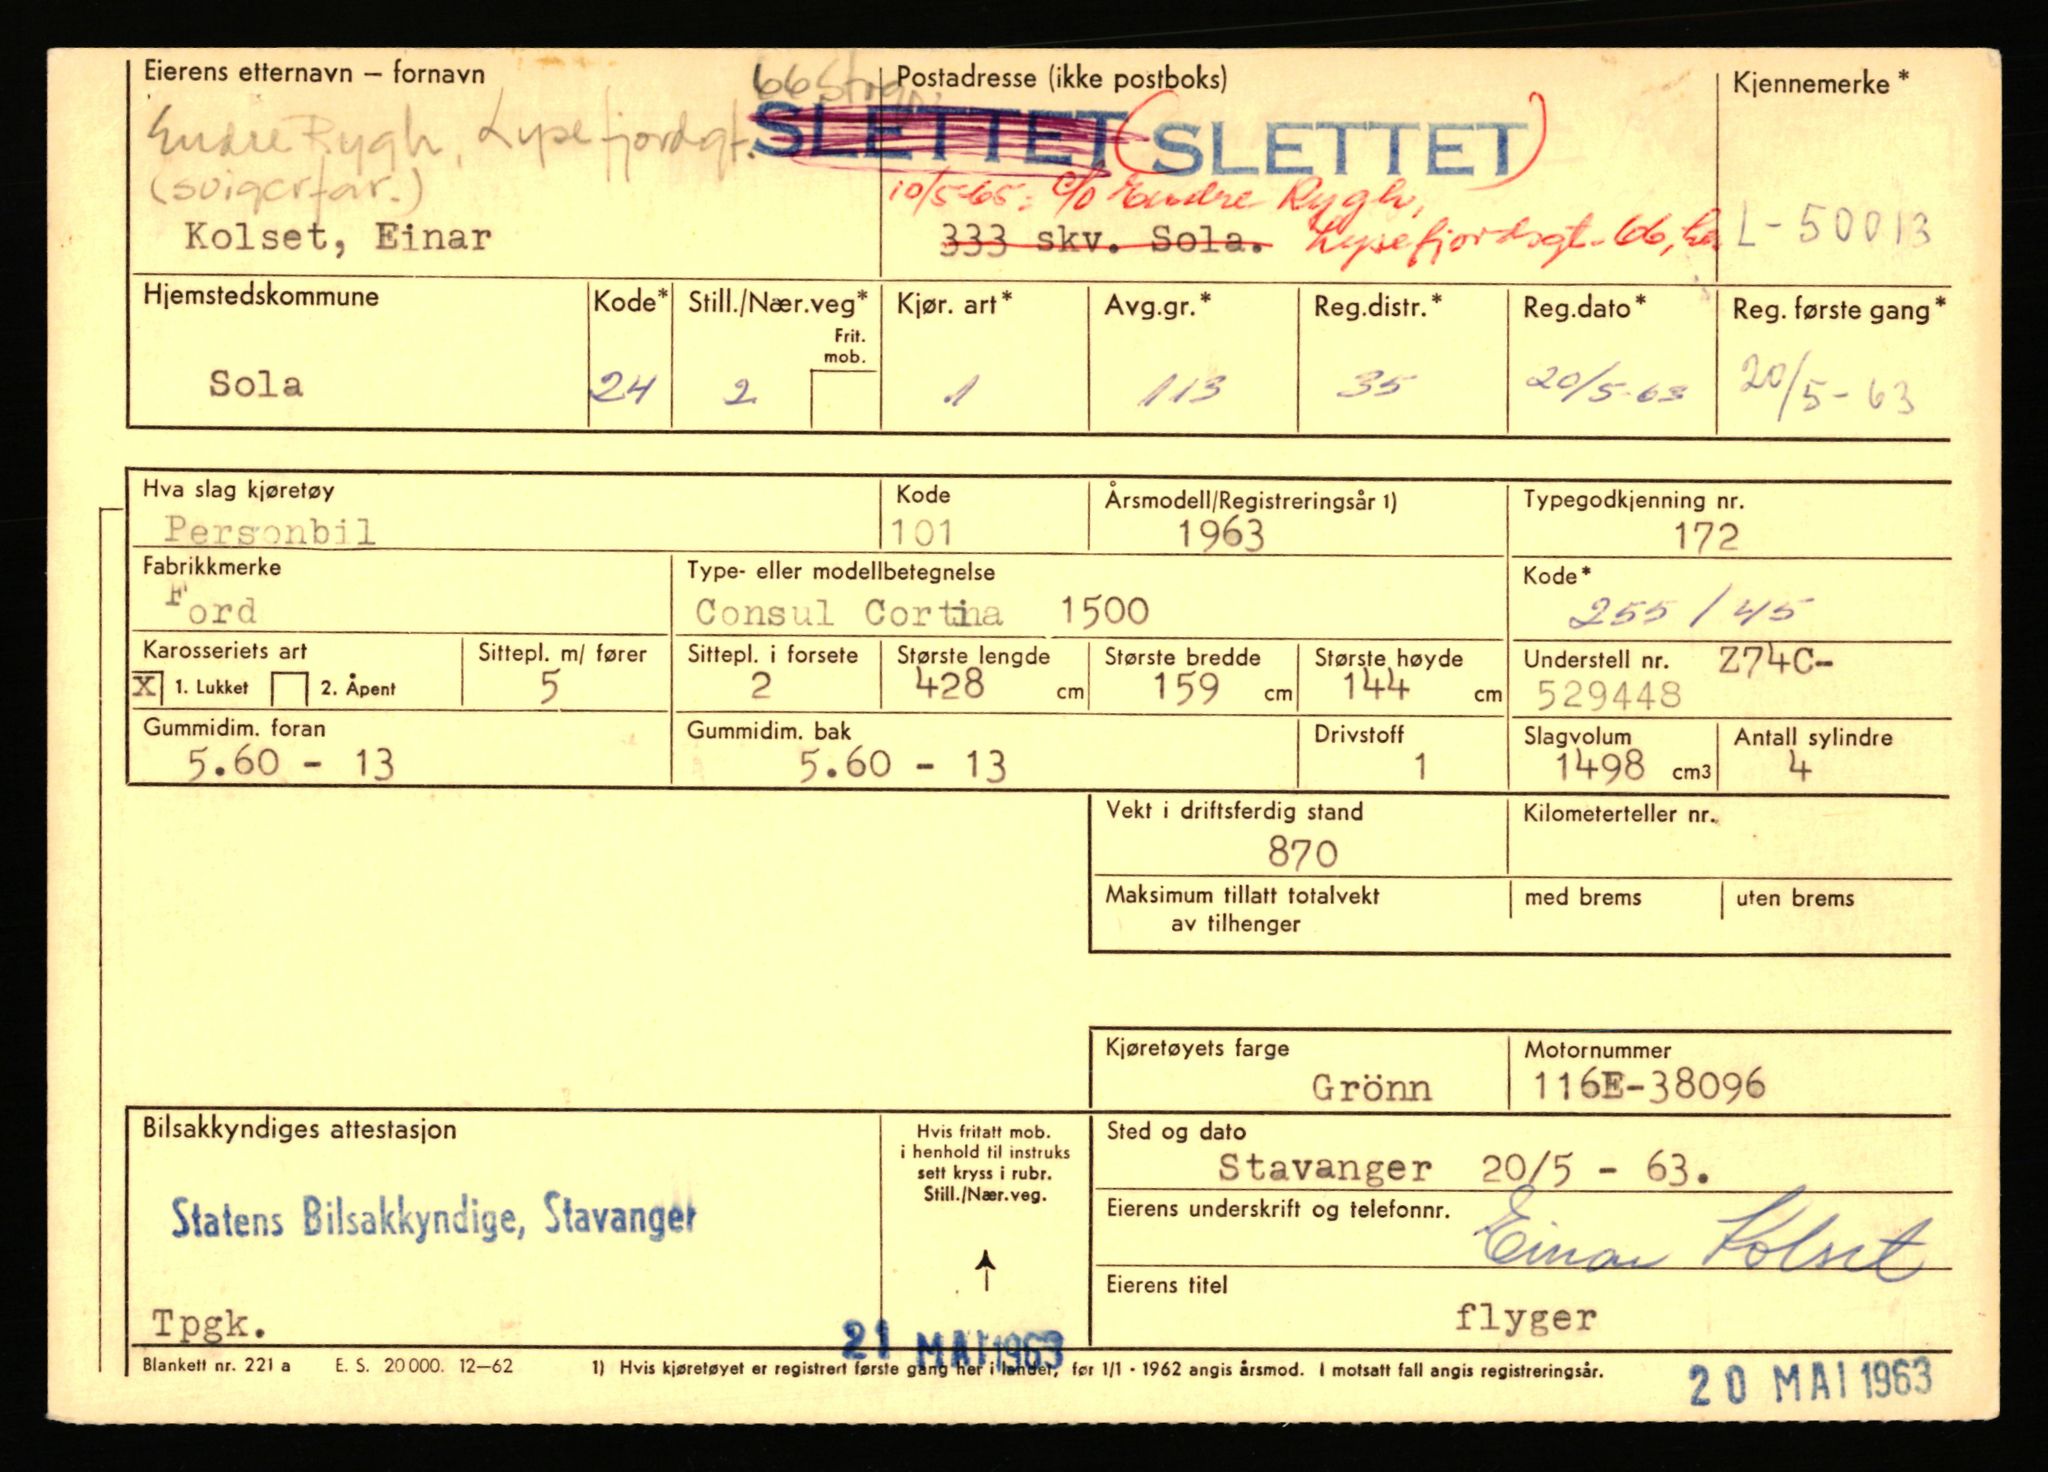 Eierens etternavn – fornavn
Postadresse (ikke postboks)
Kjennemerke *
Endre Rygh, Lysefjordgt. 66
(svigerfar.)
SLETTET (SLETTET)
10/5-65: c/o Endre Rygh,
Kolset, Einar
333 skv. Sola. Lysefjordsgt. 66,
L-50013
Hjemstedskommune
Kode*
Still./Nær.veg*
Kjør. art*
Avg.gr.*
Reg.distr.*
Reg.dato*
Reg. første gang*
Frit.
mob.
Sola
24
2
1
113
35
20/5-63
20/5-63
Hva slag kjøretøy
Kode
Årsmodell/Registreringsår 1)
Typegodkjenning nr.
Personbil
101
1963
172
Fabrikkmerke
Type- eller modellbetegnelse
Kode*
Ford
Consul Cortina 1500
255/45
Karosseriets art
Sittepl. m/ fører
Sittepl. i forsete
Største lengde
Største bredde
Største høyde
Understell nr. Z74C-
X 1. Lukket 2. Åpent
5
2
428 cm
159 cm
144 cm
529448
Gummidim. foran
Gummidim. bak
Drivstoff
Slagvolum
Antall sylindre
5.60 - 13
5.60 - 13
1
1498 cm3
4
Vekt i driftsferdig stand
Kilometerteller nr.
870
Maksimum tillatt totalvekt
av tilhenger
med brems
uten brems
Kjøretøyets farge
Motornummer
Grönn
116E-38096
Bilsakkyndiges attestasjon
Hvis fritatt mob.
i henhold til instruks
sett kryss i rubr.
Still./Nær.veg.
Sted og dato
Stavanger 20/5 - 63.
Statens Bilsakkyndige, Stavanger
Eierens underskrift og telefonnr.
Einar Kolset
Eierens titel
flyger
Tpgk.
21 MAI 1963
Blankett nr. 221 a E. S. 20 000. 12–62
1) Hvis kjøretøyet er registrert første gang her i landet, før 1/1 - 1962 angis årsmod. I motsatt fall angis registreringsår.
20 MAI 1963